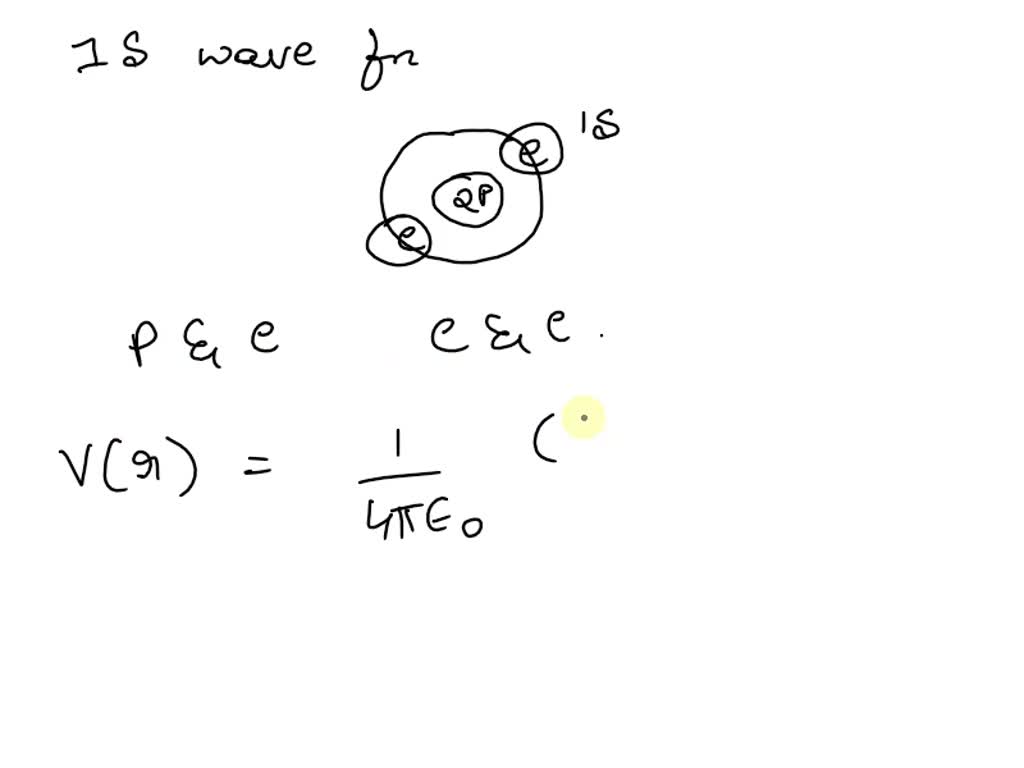 1S wave fn
1S
e
2P
e
P & e e & e.
V(r) = 1/4πε₀ (